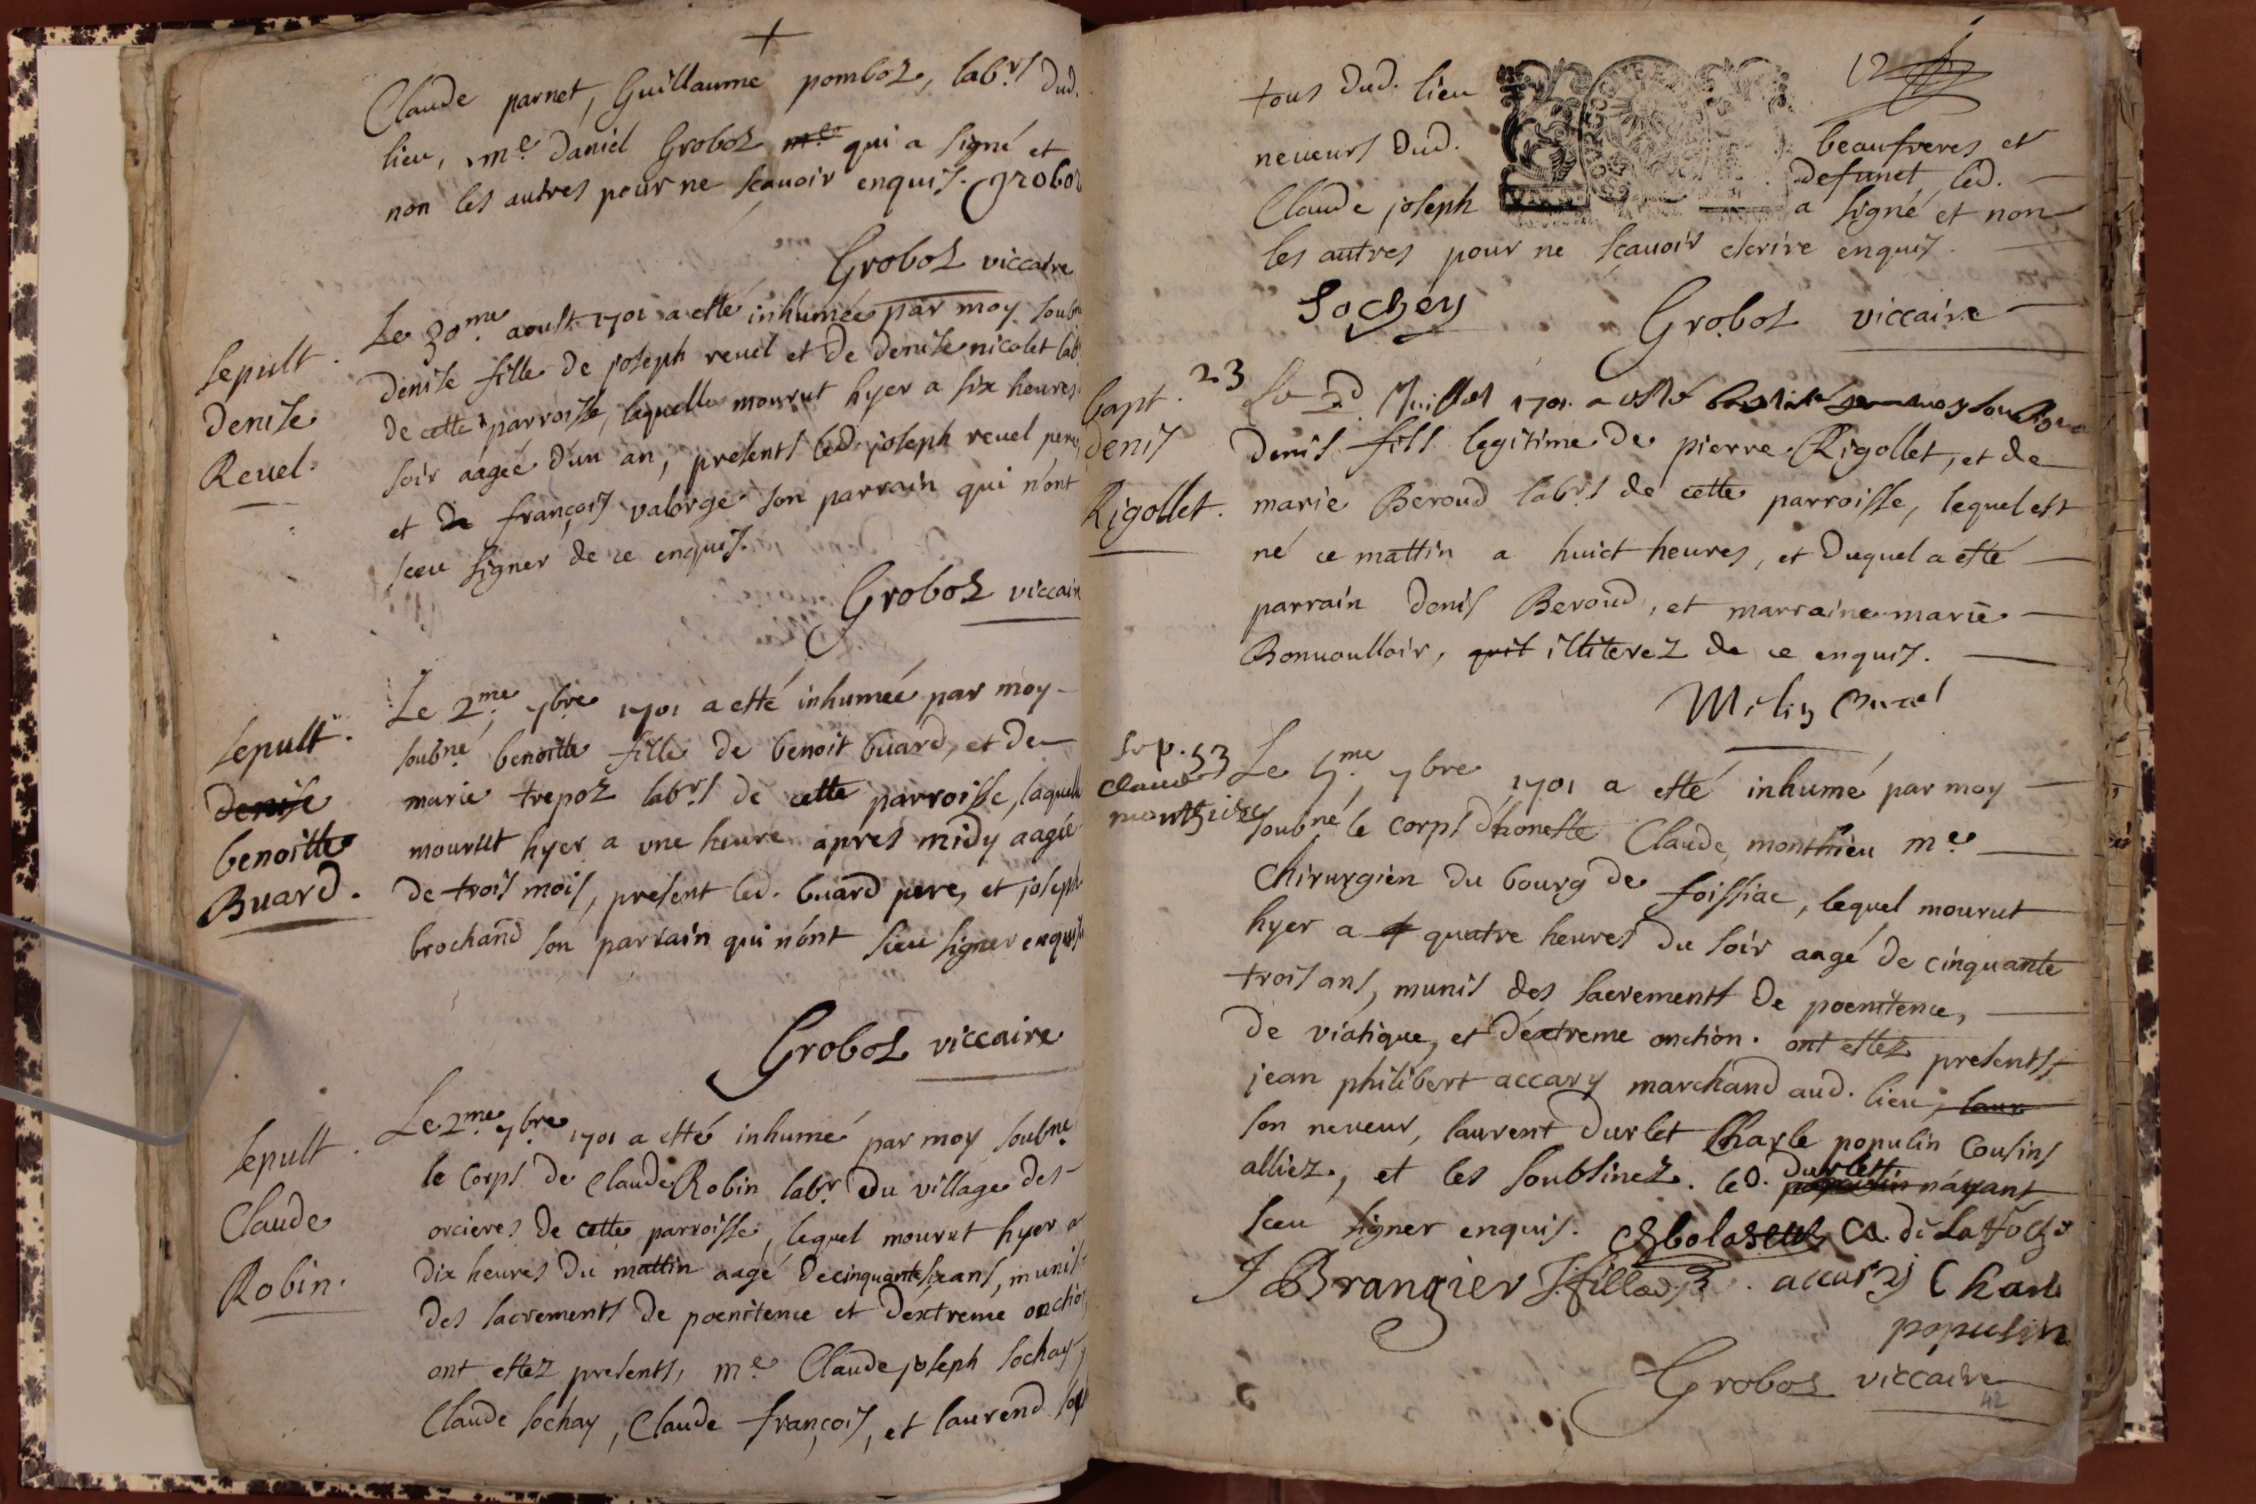 Claude parnet, Guillaume pomboz, labrs dud.
lieu, me daniel Groboz me qui a signé et
non les autres pour ne sçavoir enquis. groboz
Groboz viccaire
Sepult.
denise
Revel.
Le 30me aoust 1701 a esté inhumée par moy soubné
denise fille de joseph revel et de denise nicolet labrs
de cette parroisse, laquelle mourut hyer a six heures
soir aagée d'un an, presents led. joseph revel pere,
et de françois valorge son parrain qui n'ont
sceu signer de ce enquis.
Groboz viccaire
Sepult.
denise
benoitte
Buard.
Le 2me 7bre 1701 a esté inhumée par moy
soubné benoitte fille de benoit buard, et de
marie trepoz labrs de cette parroisse, laquelle
mourut hyer a une heure apres midy aagée
de trois mois, present led. buard pere, et joseph
brochand son parrain qui n'ont sceu signer enquis
Groboz viccaire
Sepult.
Claude
Robin.
Le 2me 7bre 1701 a esté inhumé par moy soubné
le corps de Claude Robin labr du village des
orcieres de cette parroisse, lequel mourut hyer a
dix heures du mattin aagé de cinquante six ans, munis
des sacrements de poenitence et d'extreme onction
ont estez presents, me Claude joseph sochay,
Claude sochay, Claude françois, et laurend
12
tous dud. lieu beaufreres et
neveurs dud. defunct, led.
Claude joseph a signé et non
les autres pour ne sçavoir escrire enquis.
Sochey Groboz viccaire
bapt. 23
denis
Rigollet.
Le 2d 1701 a esté
Denis fils legitime de pierre Rigollet, et de
marie Beroud labrs de cette parroisse, lequel est
né ce mattin a huict heures, et duquel a esté
parrain Denis Beroud, et marraine marie
Bonvoulloir, illiterez de ce enquis.
Curé
Sep. 53
Claude
monthieu
Le 5me 7bre 1701 a esté inhumé par moy
soubné le corps d'honeste Claude monthieu me
chirurgien du bourg de foissiac, lequel mourut
hyer a quatre heures du soir aagé de cinquante
trois ans, munis des sacrements de poenitence,
de viatique, et d'extreme onction. ont estez presents
jean philibert accary marchand aud. lieu, laur
son neveur, laurent durlet Charle populin cousins
alliez, et les soubsinez. led. durlet n'ayant
sceu signer enquis.
J Brangier accary Charle
populin
Groboz viccaire
42